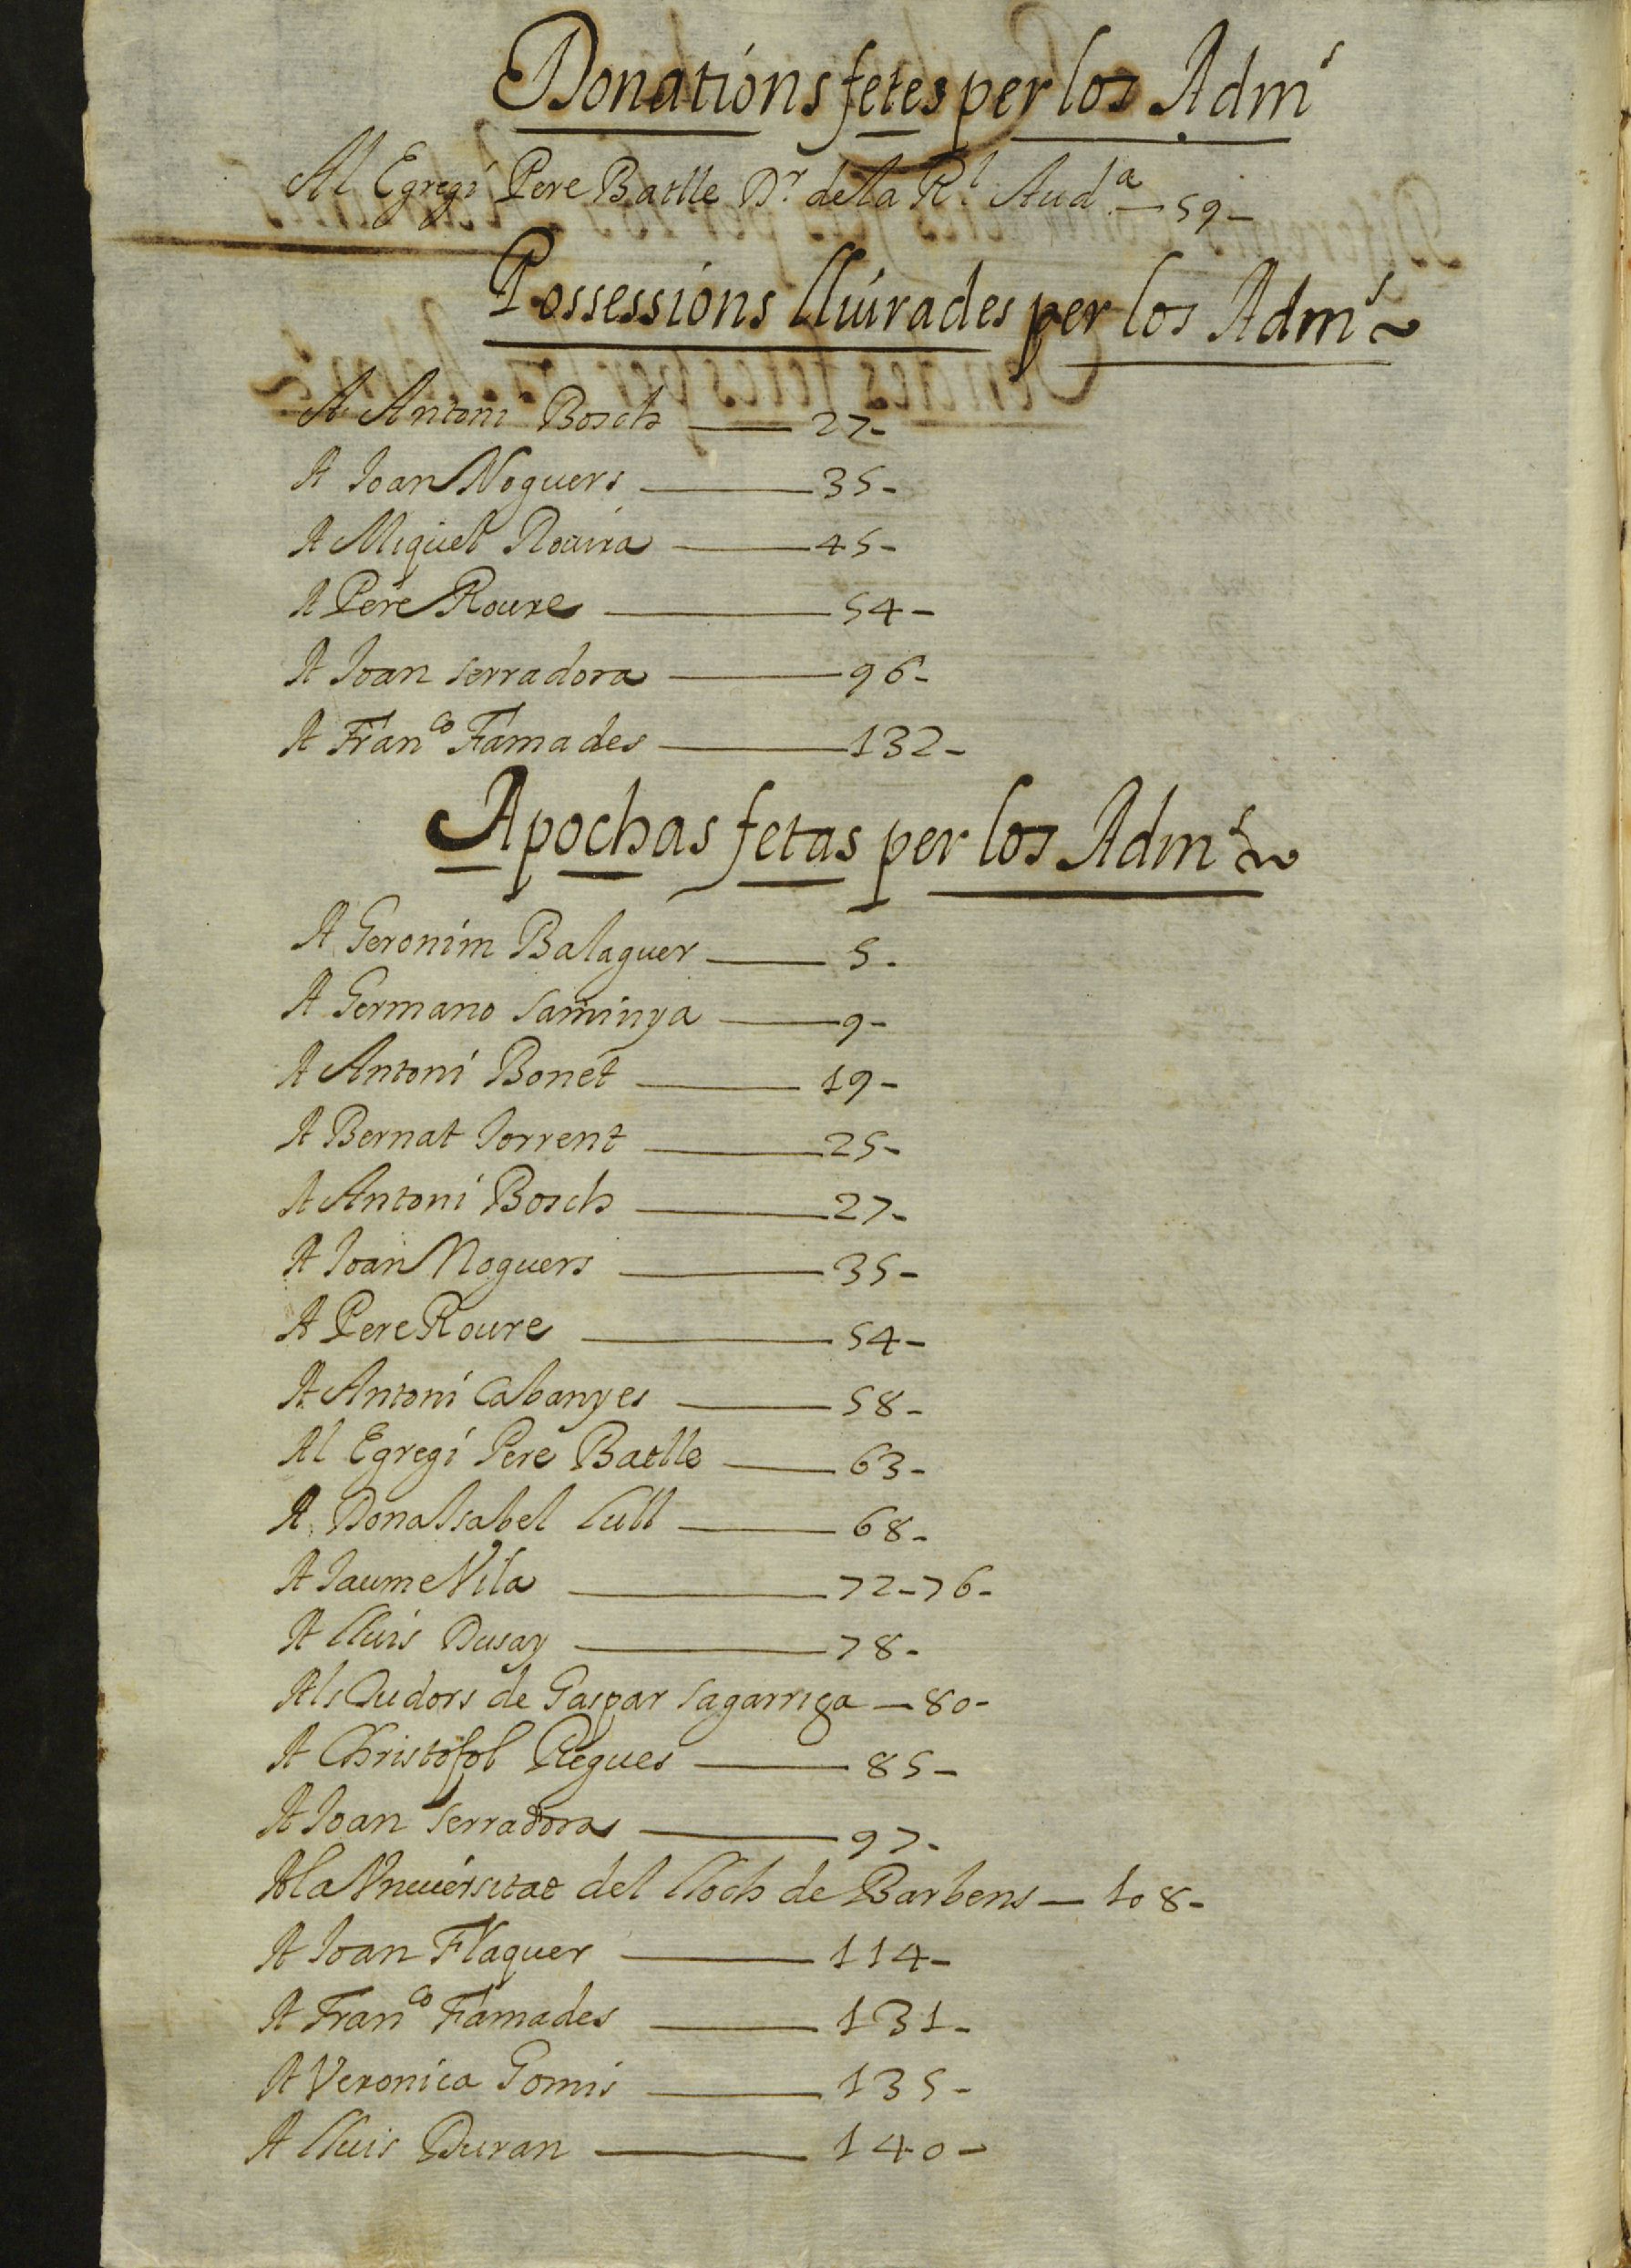 Donations fetes per los Adm^s
Al Egregi Pere Batlle D^r. de la R^l. Aud^a. — 59 –
Possessions lliurades per los Adm^s
A Antoni Bosch — 27 –
A Joan Noguers — 35 –
A Miquel Rovira — 45 –
A Pere Roure — 54 –
A Joan serradora — 96 –
A Fran^co Famades — 132 –
Apochas fetas per los Adm^s
A Geronim Balaguer — 5 –
A Germano Saminya — 9 –
A Antoni Bonet — 19 –
A Bernat Torrent — 25 –
A Antoni Bosch — 27 –
A Joan Noguers — 35 –
A Pere Roure — 54 –
A Antoni Cabanyes — 58 –
Al Egregi Pere Batlle — 63 –
A Dona Isabel Lull — 68 –
A Jaume Vila — 72 – 76 –
A Lluis Dusay — 78 –
Als de Gaspar Sagarriga — 80 –
A Christofol — 85 –
A Joan serradora — 97 –
A la Vniuersitat del lloch de Barbens — 108 –
A Joan Flaquer — 114 –
A Fran^co Famades — 131 –
A Veronica Gomis — 135 –
A Lluis Duran — 140 –